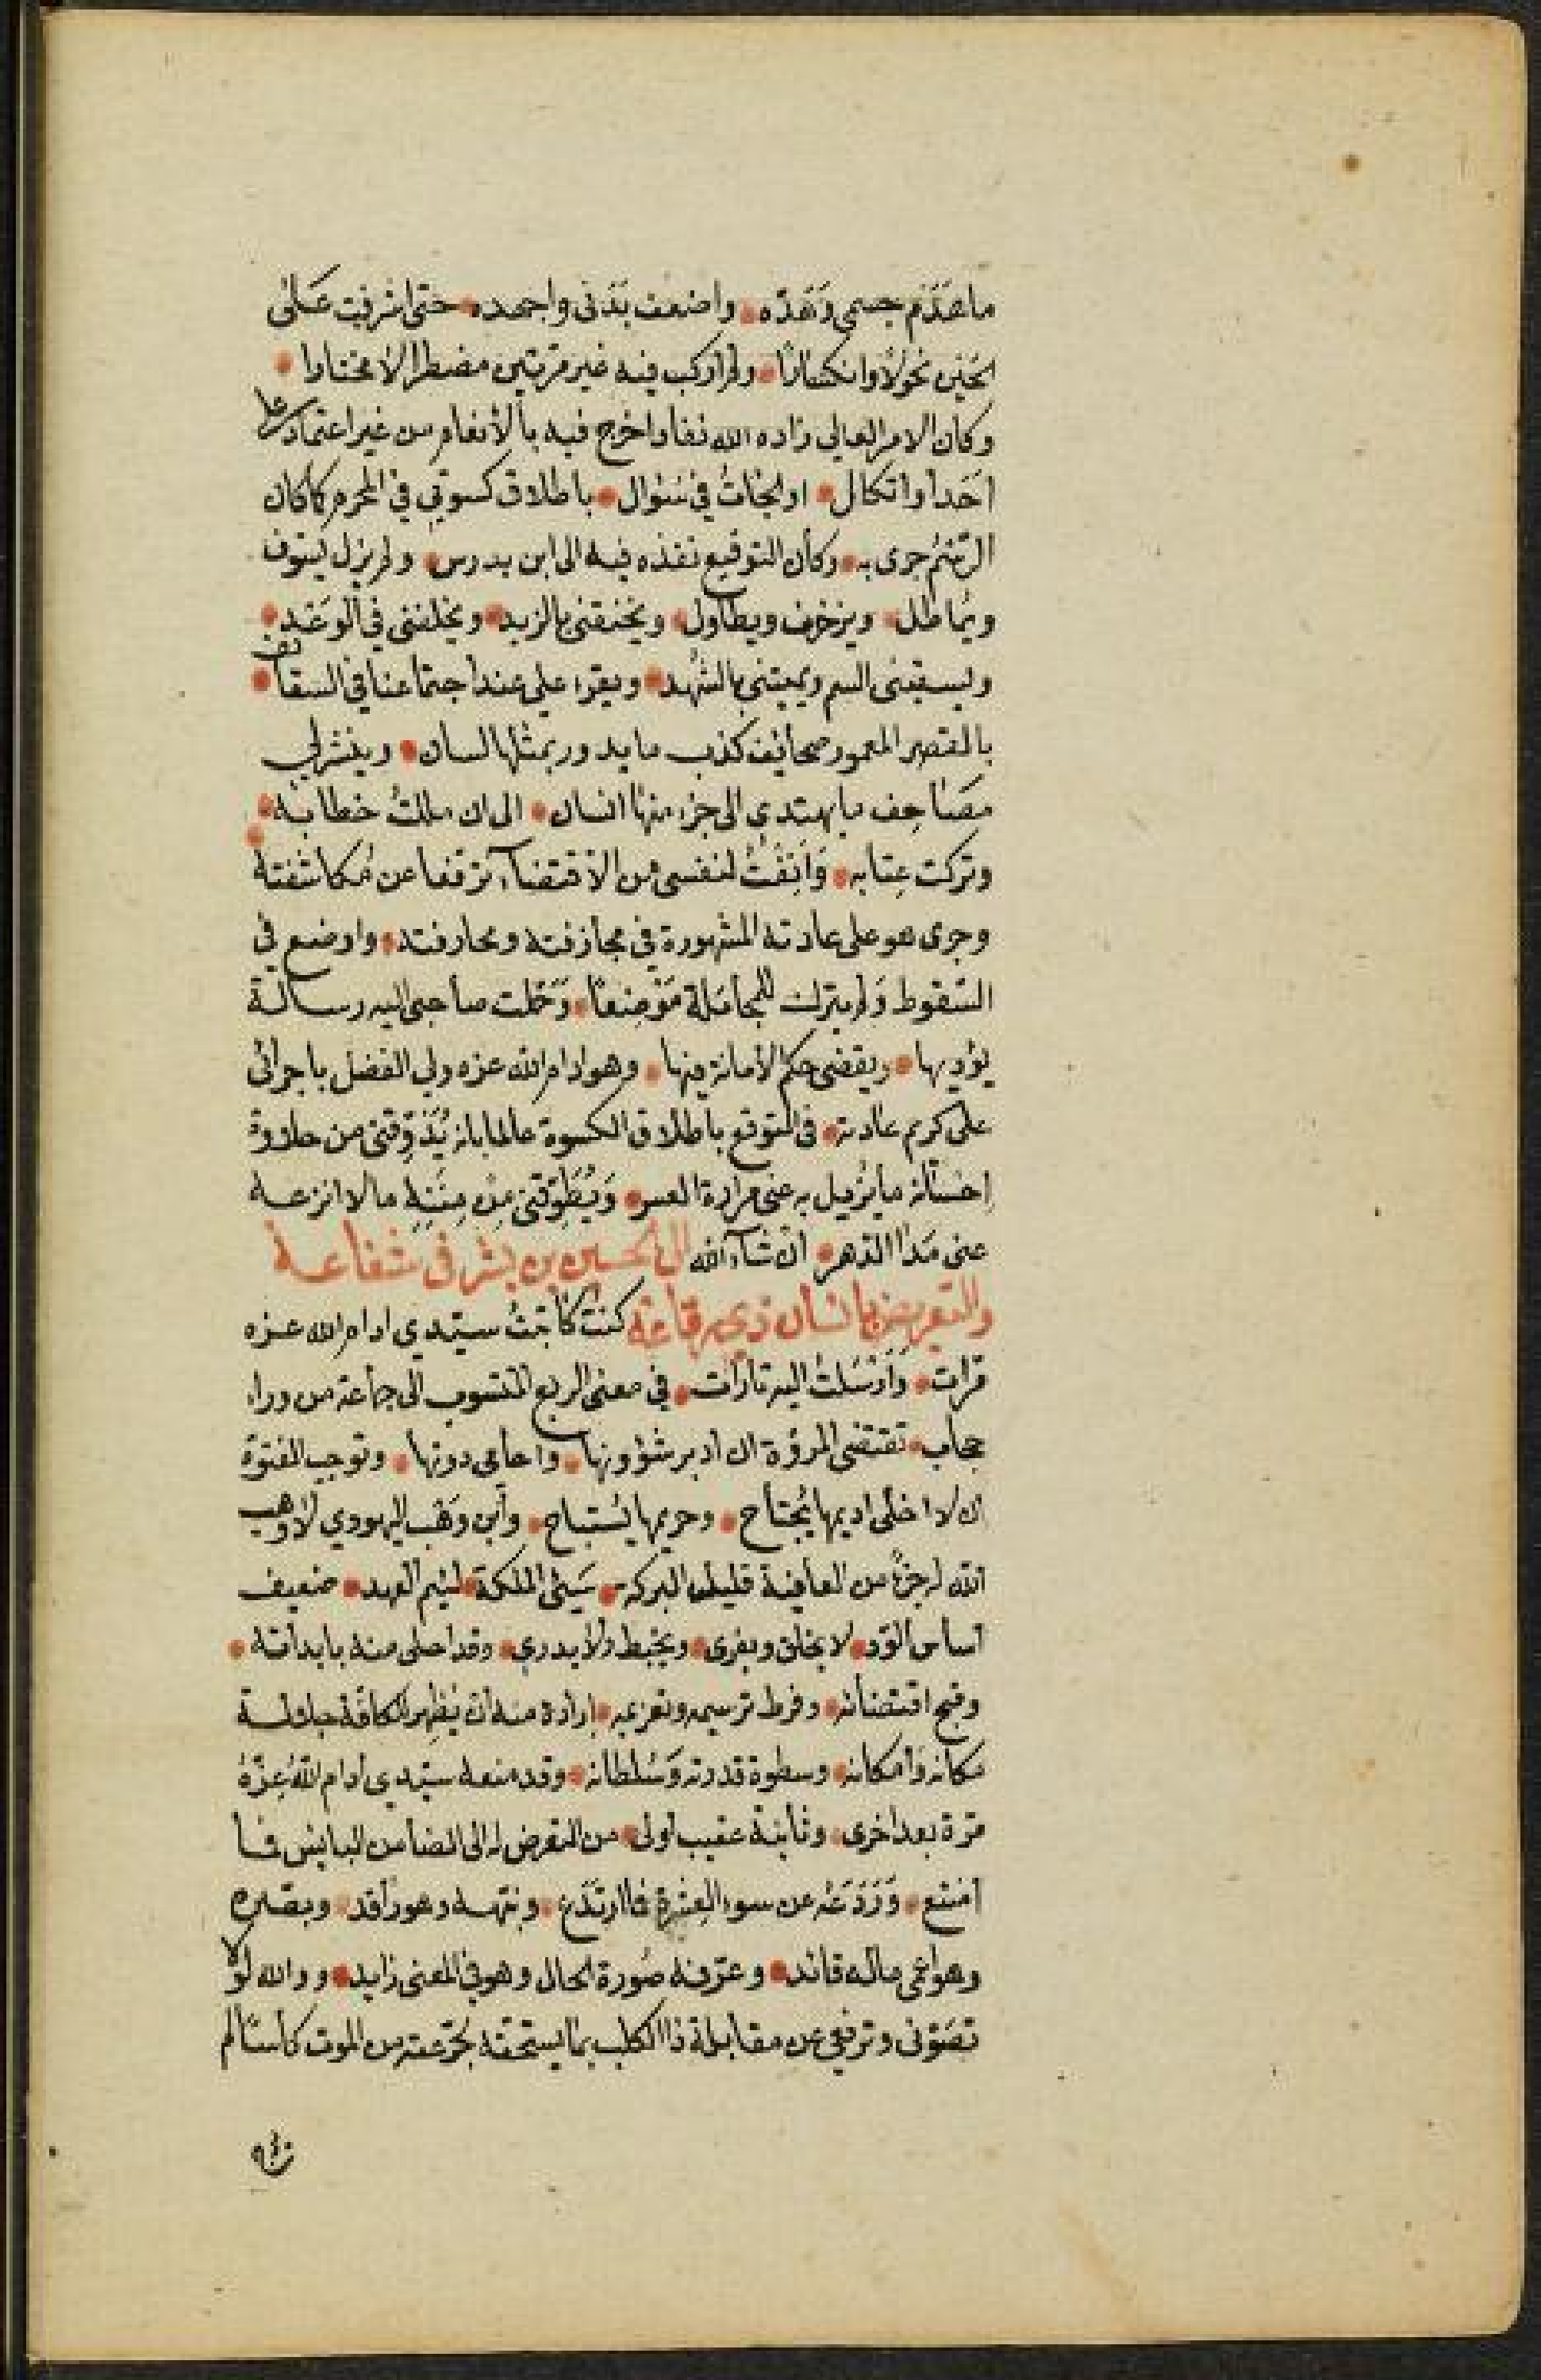 ما هَدَم جسمى وَهَدّه • واضعف بَدَنى واجهده • حتى اشرفت عَلى
الحَين نحولاً وانكسارًا • ولم اركب فيه غير مرتين مضطرا لا مختارا •
وكان الامر العالى زاده الله نفاذا خرج فيه بالانعام من غير اعتماد على
اَحَد أو اتكال • او الجاث فى سؤال • باطلاق كسوتى فى المحرم كما كان
الرّسْم جرى به • وكأن التوقيع نفذه فيه الى ابن بدرس • ولم يزل يسوف
ويُماطل • ويزخرف ويطاول • ويخنقنى بالزبد • ويخلفنى فى الوَعْد •
ويسقينى السم ويميتنى بالشُهد • ويقرء على عند اجتماعنا فى السقائف •
بالقصر المعمور صحائف كذب ما يدور بمثلها لسان • وينشر لى
مصَاحِف ما يهتدى الى جزء منها انسان • الى ان مللتُ خطابه •
وتركت عِتابه • وَاَنِفْتُ لنفسى من الاقتضاء ترفعا عن مُكاشفته •
وجرى هو على عادته المشهورة فى مجازفته ومحارفته • واوضع فى
السّقوط وَلم يترك للمجامَلة مَوْضعًا • وَحَمّلت صاحبى اليه رسالة
يؤديها • ويقضى حكم الأمانة فيها • وهو ادام الله عزه ولى الفضل باجرائى
على كريم عادته • فى التوقع باطلاق الكسوة عالما بانه يُذوِّقنى من حلاوة
اِحْسانه ما يُزيل به عنى مرارة العسر • وَيُطَوِّقنى مِنْ مِنَنِهِ ما لا انزعه
عنى مَدَا الدَهر • ان شاء الله الى الحسين بن بشر فى شفاعة
والتعريض بانسان ذى رقاعة كنت كاتبتُ سيّدى ادام الله عزه
مرات • وَاَرْسَلتُ اليه تارات • فى معنى الربع المنسوب الى جماعة من وراء
حجاب • تقتضى المروّة ان ادبر شؤونها • واحامى دونها • وتوجب الفتوّة
ان لا اخلى اديمها يُجتاح • وحريمها يُستباح • وأبن وَهْب اليهودي لا وهب
الله له جزءً من العافية قليل البركه • سَيئ الملكة • لئيم العهد • ضعيف
اساس الوّد • لا يخلق ويفرى • ويخبط ولا يدرى • وقد اصلى منه بايذائه •
وقبح اقتضائه • وفرط ترسيمه وتغريمه • ارادة منه ان يُظهر للكافّة جلالة
مكانه وَاِمكانه • وسطوة قدرته وَسُلطانه • وقد منعه سيّدى أدام اللّهُ عِزّهُ
مرّة بعد اخرى • وثانية عقيب اولى • من التعرض له الى الضامن البايس فما
اَمْتنع • وَرَدَعَهُ عن سوء العِشرة فما ارتدَع • ونبّهه وهو رَاقد • وبصّره
وهو اعمى ماله قائد • وعرّفه صُورة الحال وهو فى المعنى زايد • ووالله لولا
تصَوّنى وترفعى عن مقابلة ذا الكلب بما يستحقه لجرّعته من الموت كأسًا لم